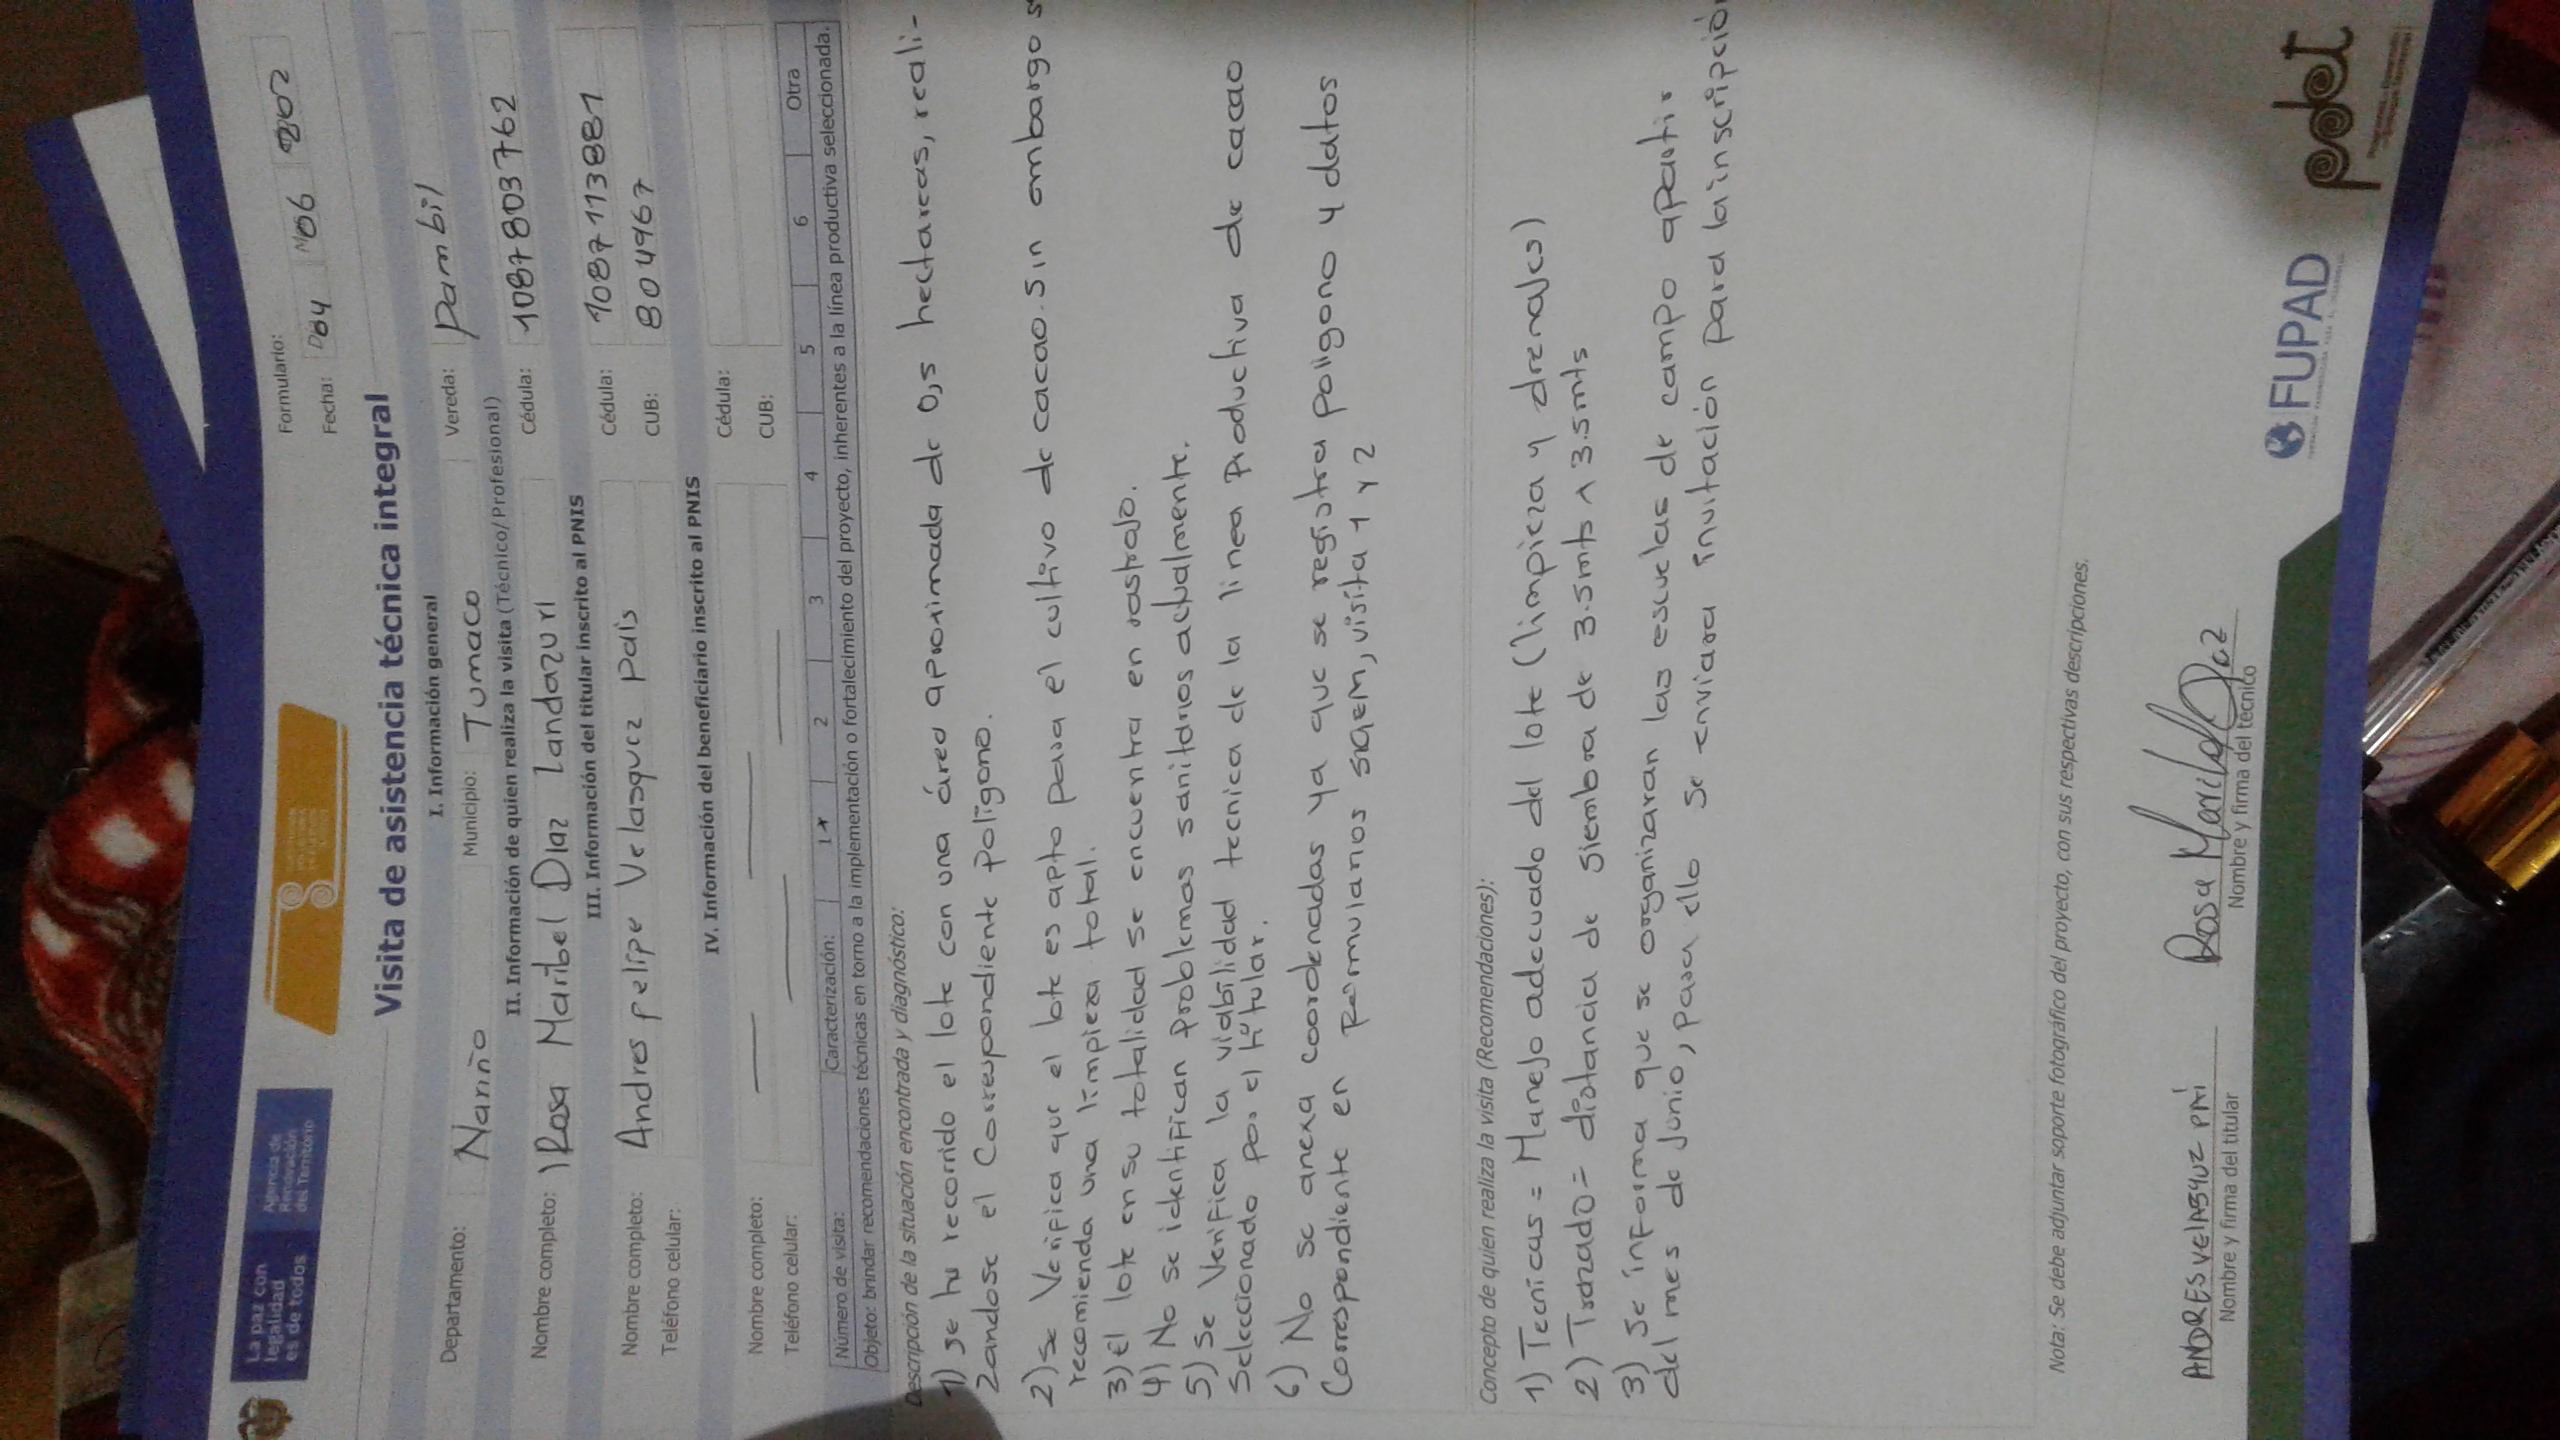 La paz con
legalidad
es de todos
Agencia de
Renovación
del Territorio
Formulario:
Fecha: D04 M06 202
Visita de asistencia técnica integral
I. Información general
Departamento: Nariño Municipio: Tumaco Vereda: Pambil
II. Información de quien realiza la visita (Técnico/ Profesional)
Nombre completo: Rosa Maribel Diaz Landazuri Cédula: 1087803762
III. Información del titular inscrito al PNIS
Nombre completo: Andres pelipe Velasquez pais Cédula: 1087113881
Teléfono celular: CUB: 804967
IV. Información del beneficiario inscrito al PNIS
Nombre completo: Cédula:
Teléfono celular: CUB:
Número de visita: Caracterización: 1 x 2 3 4 5 6 Otra
Objeto: brindar recomendaciones técnicas en torno a la implementación o fortalecimiento del proyecto, inherentes a la línea productiva seleccionada.
Descripción de la situación encontrada y diagnóstico:
1) se hu recorrido el lote con una área aproximada de 0,5 hectareas, reali-
zandose el Correspondiente polígono.
2) se Veripica que el lote es apto para el cultivo de cacao. Sin ombargo s
recomienda una limpieza total.
3) El lote en su totalidad se encuentra en rastrojo.
4) No se identifican problemas sanitarios actualmente.
5) se Verifica la viabilidad tecnica de la linea productiva de cacao
Seleccionado por el titular.
6) No se anexa coordenadas ya que se registra poligono y datos
Correspondiente en Pormularios SIGEM, visita 1 y 2
Concepto de quien realiza la visita (Recomendaciones):
1) Tecnicas = Manejo adecuado del lote (limpieza y drenajes)
2) Trazado = distancia de siembra de 3.5mts x 3.5mts
3) Se informa que se organizaran las escuelas de campo apartir
del mes de Junio, para ello se enviara invitación para la inscripción
Nota: Se debe adjuntar soporte fotográfico del proyecto, con sus respectivas descripciones.
ANDRES VElASQUZ PAí Rosa Maribel Diaz
Nombre y firma del titular Nombre y firma del técnico
FUPAD
pdet